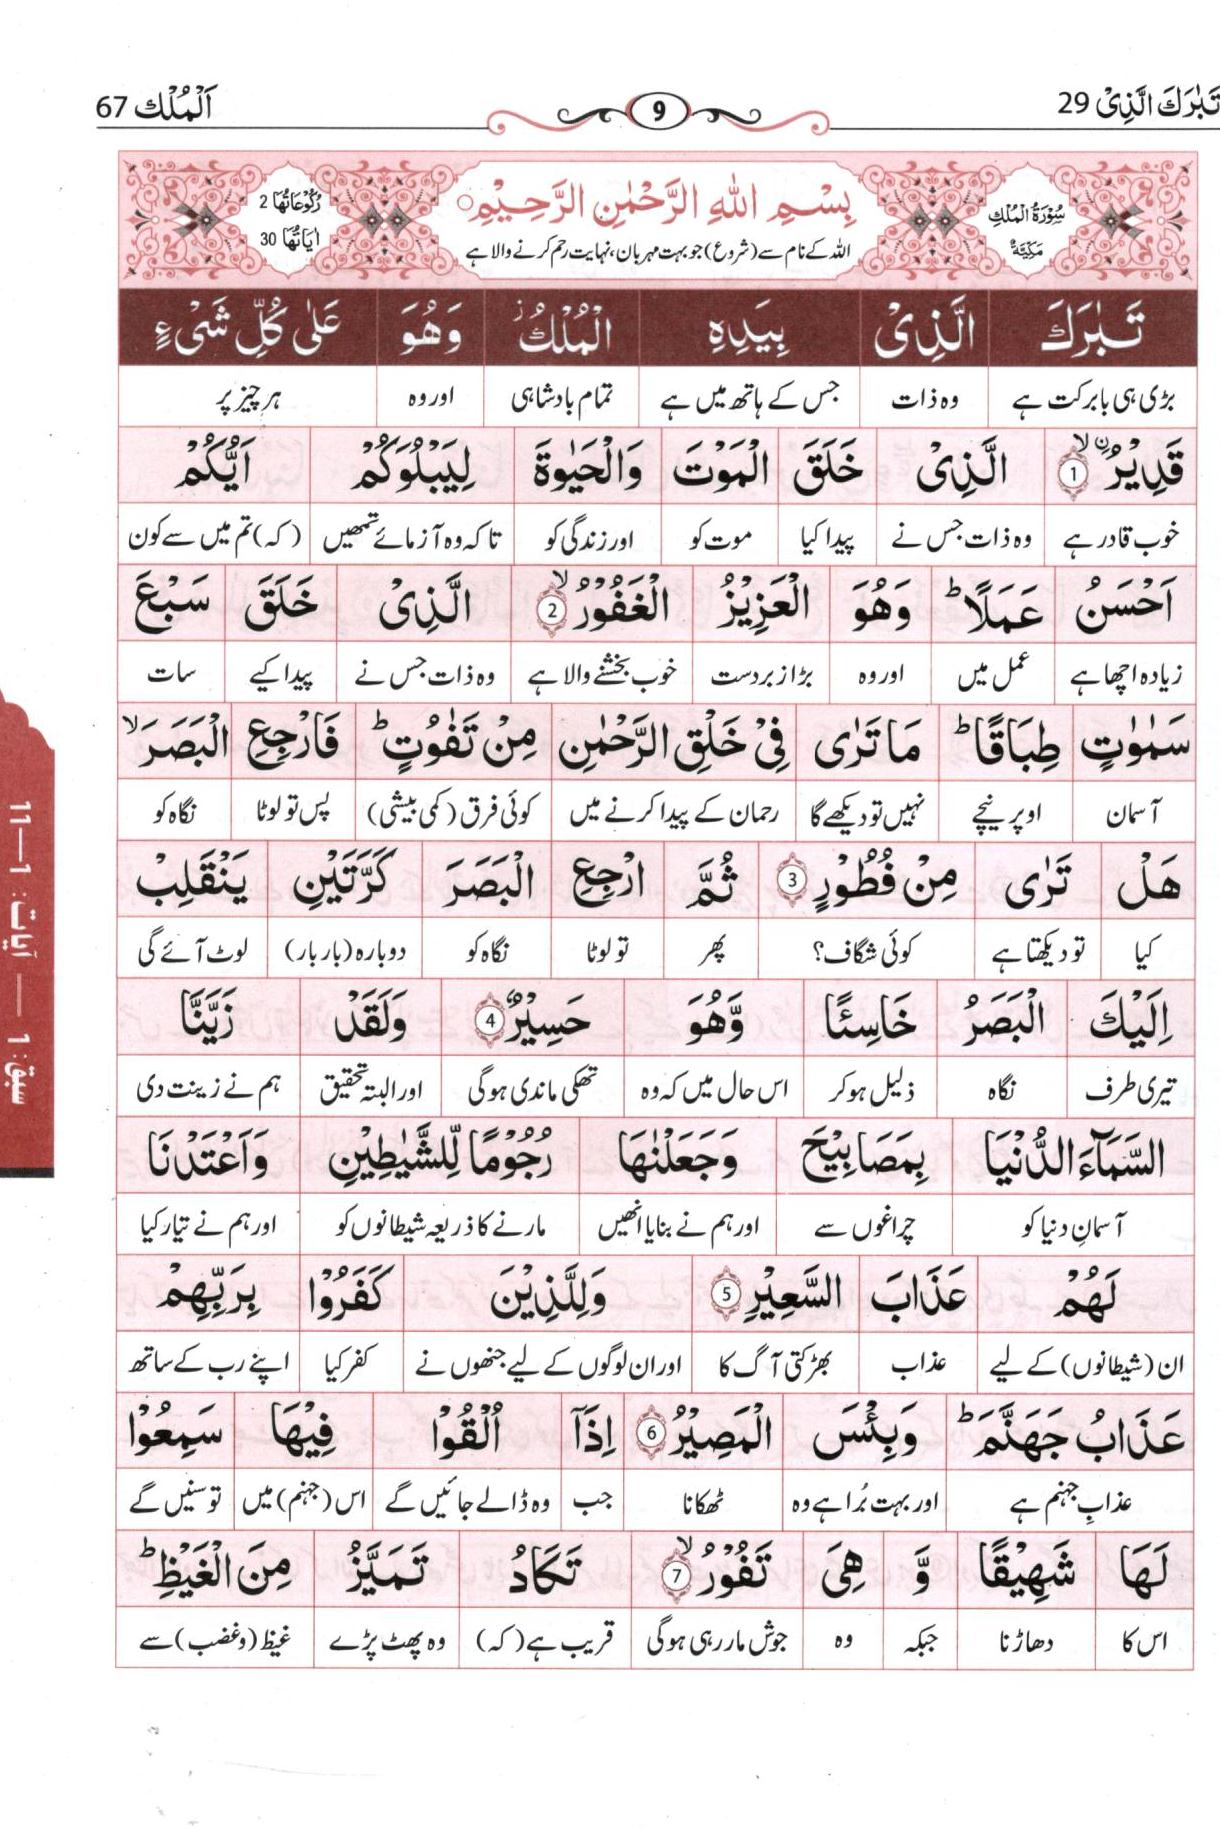 تَبٰرَكَ الَّذِیْ 29
9
اَلْمُلْك 67
سُوْرَةُ الْمُلْكِ
مَكِّيَّةٌ
بِسْمِ اللهِ الرَّحْمٰنِ الرَّحِيْمِ
اللہ کے نام سے (شروع) جو بہت مہربان، نہایت رحم کرنے والا ہے
رُكُوْعَاتُهَا 2
اٰيَاتُهَا 30
تَبٰرَكَ الَّذِیْ بِیَدِهِ الْمُلْكُ ز وَهُوَ عَلٰی كُلِّ شَیْءٍ
بڑی ہی بابرکت ہے وہ ذات جس کے ہاتھ میں ہے تمام بادشاہی اور وہ ہر چیز پر
قَدِیْرُ ۨ ۙ 1 الَّذِیْ خَلَقَ الْمَوْتَ وَالْحَیٰوةَ لِیَبْلُوَكُمْ اَیُّكُمْ
خوب قادر ہے وہ ذات جس نے پیدا کیا موت کو اور زندگی کو تاکہ وہ آزمائے تمھیں (کہ) تم میں سے کون
اَحْسَنُ عَمَلًا ؕ وَهُوَ الْعَزِیْزُ الْغَفُوْرُ ۙ 2 الَّذِیْ خَلَقَ سَبْعَ
زیادہ اچھا ہے عمل میں اور وہ بڑا زبردست خوب بخشنے والا ہے وہ ذات جس نے پیدا کیے سات
سَمٰوٰتٍ طِبَاقًا ؕ مَا تَرٰی فِیْ خَلْقِ الرَّحْمٰنِ مِنْ تَفٰوُتٍ ؕ فَارْجِعِ الْبَصَرَ ۙ
آسمان اوپر نیچے نہیں تو دیکھے گا رحمان کے پیدا کرنے میں کوئی فرق (کمی بیشی) پس تو لوٹا نگاہ کو
هَلْ تَرٰی مِنْ فُطُوْرٍ 3 ثُمَّ ارْجِعِ الْبَصَرَ كَرَّتَیْنِ یَنْقَلِبْ
کیا تو دیکھتا ہے کوئی شگاف؟ پھر تو لوٹا نگاہ کو دوبارہ (بار بار) لوٹ آئے گی
اِلَیْكَ الْبَصَرُ خَاسِئًا وَّهُوَ حَسِیْرٌ 4 وَلَقَدْ زَیَّنَّا
تیری طرف نگاہ ذلیل ہوکر اس حال میں کہ وہ تھکی ماندی ہوگی اور البتہ تحقیق ہم نے زینت دی
السَّمَآءَ الدُّنْیَا بِمَصَابِیْحَ وَجَعَلْنٰهَا رُجُوْمًا لِّلشَّیٰطِیْنِ وَاَعْتَدْنَا
آسمانِ دنیا کو چراغوں سے اور ہم نے بنایا انھیں مارنے کا ذریعہ شیطانوں کو اور ہم نے تیار کیا
لَهُمْ عَذَابَ السَّعِیْرِ 5 وَلِلَّذِیْنَ كَفَرُوْا بِرَبِّهِمْ
ان (شیطانوں) کے لیے عذاب بھڑکتی آگ کا اور ان لوگوں کے لیے جنھوں نے کفر کیا اپنے رب کے ساتھ
عَذَابُ جَهَنَّمَ ؕ وَبِئْسَ الْمَصِیْرُ 6 اِذَاۤ اُلْقُوْا فِیْهَا سَمِعُوْا
عذابِ جہنم ہے اور بہت بُرا ہے وہ ٹھکانا جب وہ ڈالے جائیں گے اس (جہنم) میں تو سنیں گے
لَهَا شَهِیْقًا وَّ هِیَ تَفُوْرُ ۙ 7 تَكَادُ تَمَیَّزُ مِنَ الْغَیْظِ ؕ
اس کا دھاڑنا جبکہ وہ جوش مار رہی ہوگی قریب ہے (کہ) وہ پھٹ پڑے غیظ (وغضب) سے
سبق: 1 — آیات: 1—11